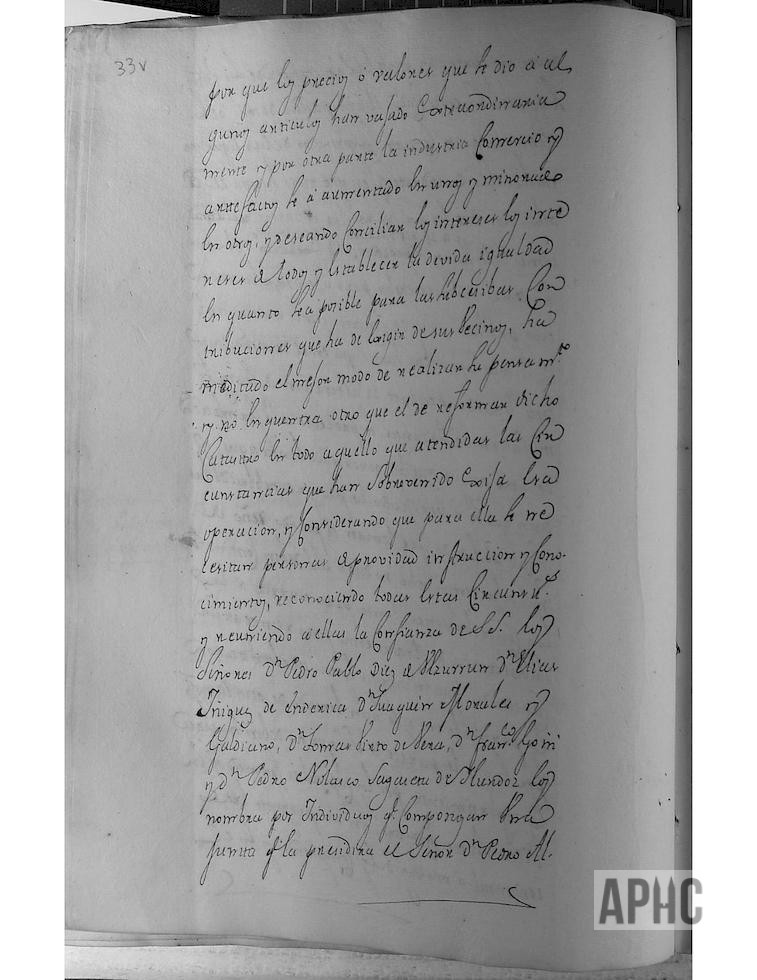 33v
por que los precios ó valores que se dio a al
gunos articulos han vajado Extraordinaria
mente y por otra parte la industria Comercio y
artefactos se á aumentado en unos y minorado
en otros, y deseando Conciliar los intereses los inte
reses de todos y establecer la devida igualdad
en quanto sea posible para las subcesibas Con
tribuciones que ha de exigir de sus Vecinos, ha
meditado el mejor modo de realizar su pensam.to
y no enquentra otro que el de reformar dicho
Catastro en todo aquello que atendidas las Cir
cunstancias que han Sobrevenido Exija esta
operacion, y Considerando que para ella se ne
cesitan personas de providad instruccion y Cono-
cimientos, reconociendo todas estas Circunst.s
y reuniendo a ellas la Confianza de S.S. los
Señores Dn Pedro Pablo Diez de Ulzurrun Dn Elias
Iñiguez de Dn Juaquin Morales y
Galdiano, Dn Tomas Pinto de Vera, Dn Fran.co Goñi
y Dn Pedro Nolasco Sagaseta de los
nombra por Individuos q.e Compongan Una
Junta q.e la presidira el Señor Dn Pedro Al-
APHC